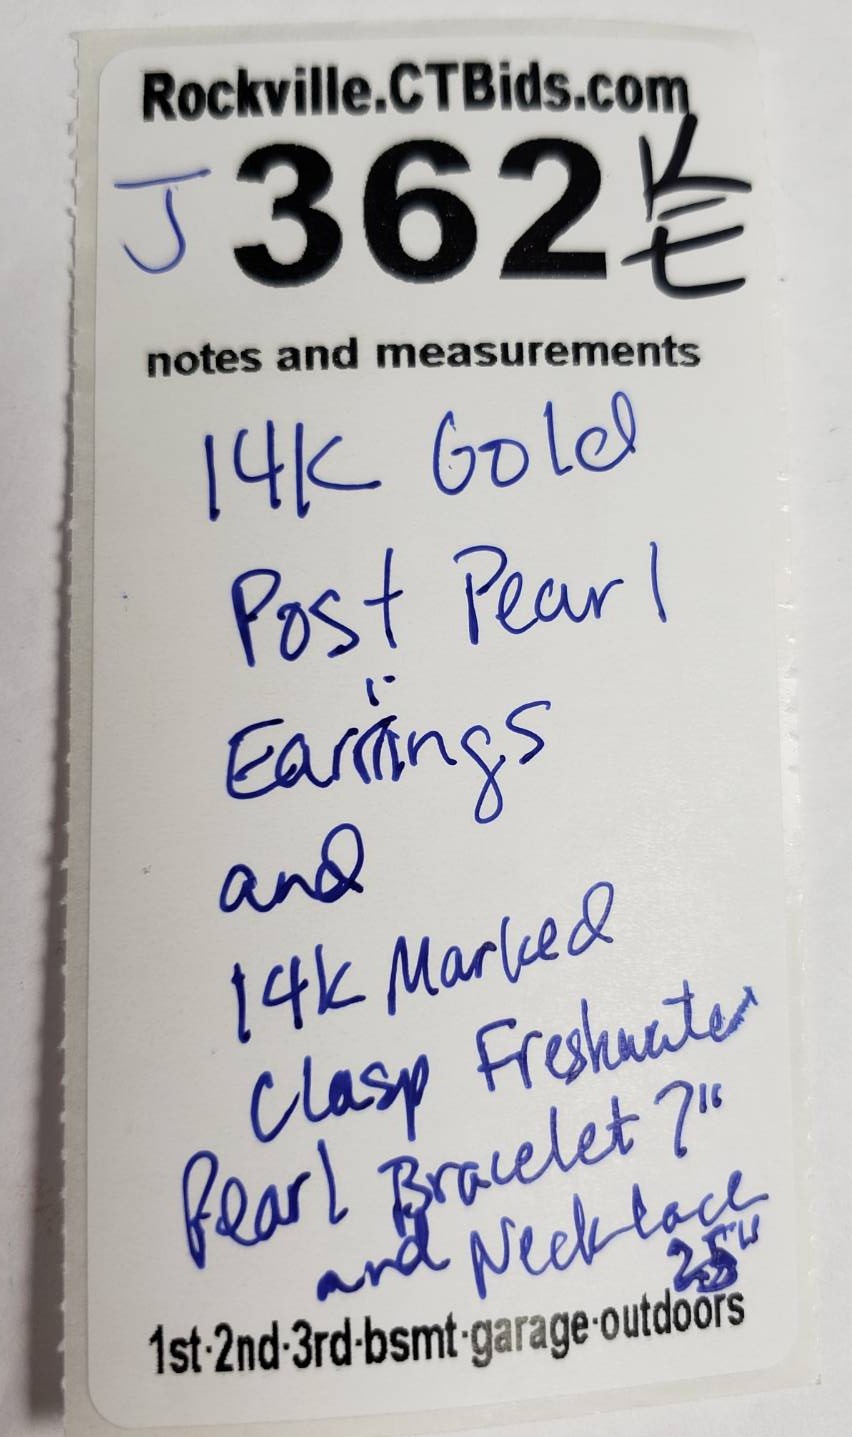 Rockville.CTBids.com
J 362 KE
notes and measurements
14K Gold
Post Pearl
Earrings
and
14k Marked
Clasp Freshwater
Pearl Bracelet 7"
and Necklace
25"
1st·2nd·3rd·bsmt·garage·outdoors